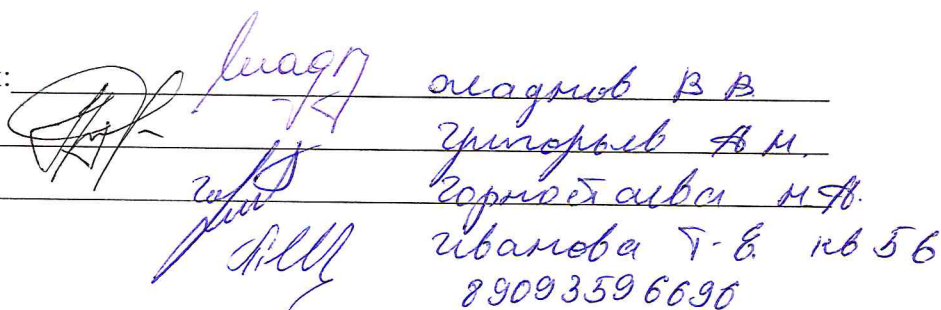 Оладнов В В.
Григорьев А Н.
Горностаева Н.А.
Иванова Т-Е. кв 56
89093596696